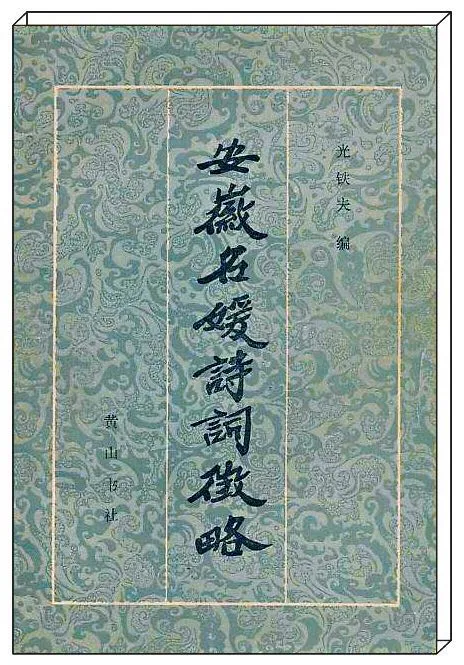 光铁夫 编
安徽名媛詩詞徵略
黄山书社